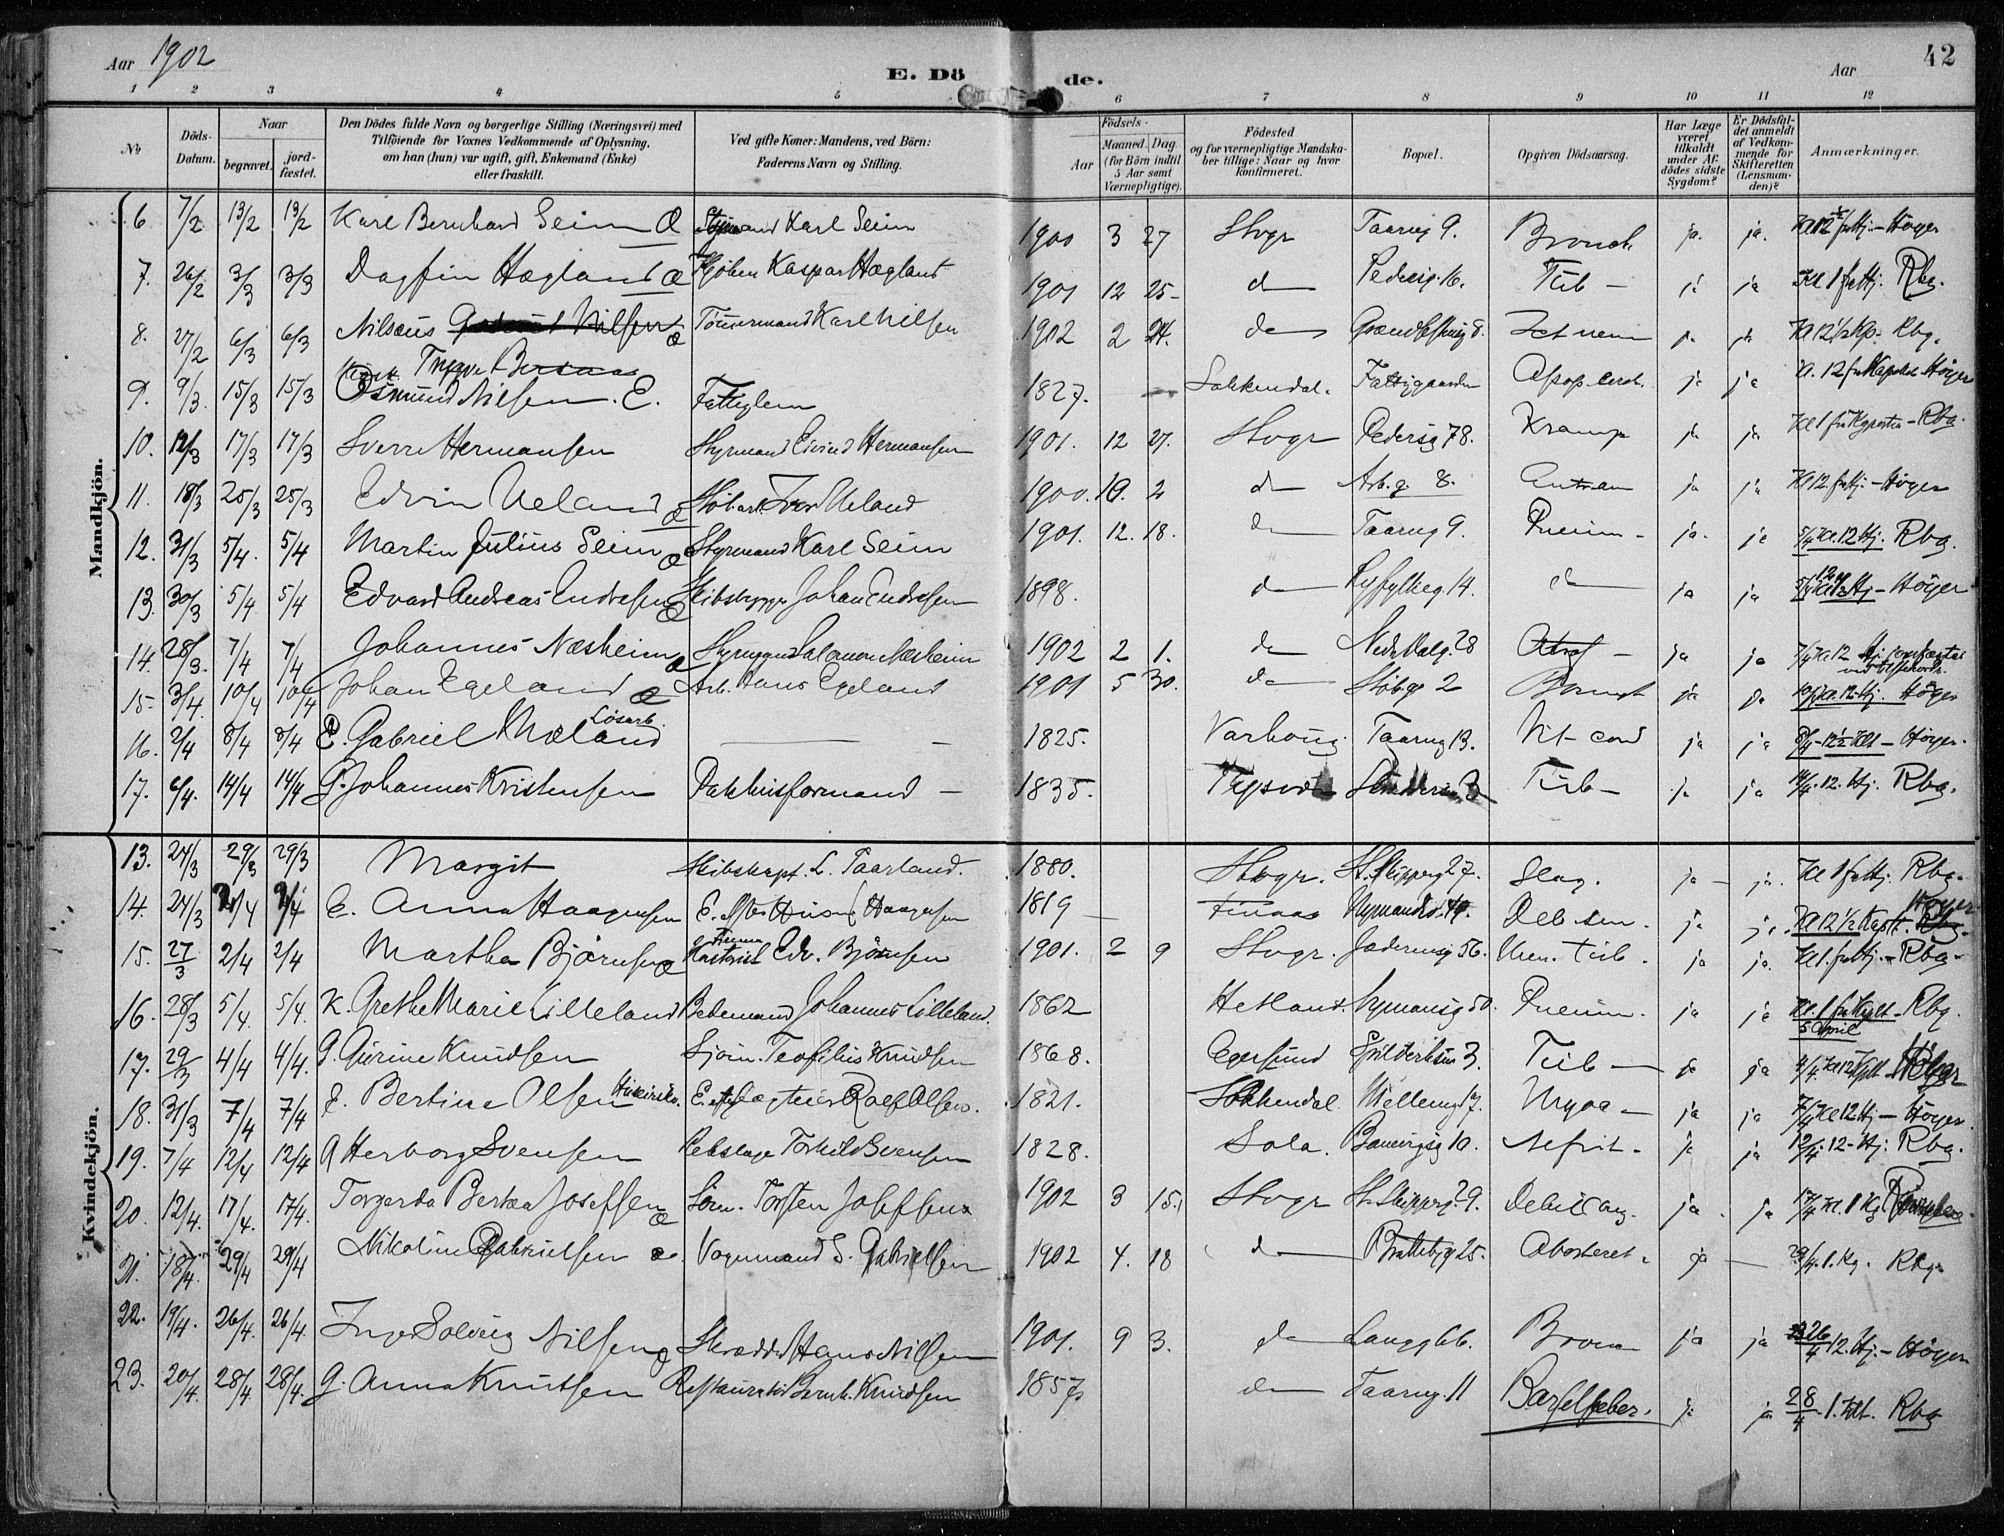 Aar 1902
E. Dö de.
Aar
42
1 2 3 4 5 6 7 8 9 10 11 12
No
Döds-Datum.
Naar begravet. jordfæstet.
Den Dödes fulde Navn og borgerlige Stilling (Næringsvei) med Tilföiende for Voxnes Vedkommende af Oplysning, om han (hun) var ugift, gift, Enkemand (Enke) eller fraskilt.
Ved gifte Koner: Mandens, ved Börn: Faderens Navn og Stilling.
Födsels-
Aar Maaned. Dag. (for Börn indtil 5 Aar samt Værnepligtige).
Födested og for værnepligtige Mandskaber tillige: Naar og hvor konfirmeret.
Bopæl.
Opgiven Dödsaarsag.
Har Læge været tilkaldt under Afdödes sidste Sygdom?
Er Dödsfaldet anmeldt af Vedkommende for Skifteretten (Lensmanden)?
Anmærkninger.
Mandkjön.
6. 7/2 13/2 13/2 Karl Bernhard Seim Æ Styrmand Karl Seim 1900 3 27 Stvgr Taarng 9. Bronch ja. ja. Kl 12 1/2 fr Hj. - Höyer
7. 26/2 3/3 3/3 Dagfin Hægland Æ Kaspar Hægland 1901 12 25 d Pedersg. 16. Tub ja ja Kl 1 fr Hj. Rbg.
8. 27/2 6/3 6/3 Nilsæus Æ Tömmermand Karl Nilsen 1902 2 24. do 8. ja ja Kl 12 1/2 Kp. Rbg.
9. 9/3 15/3 15/3 Osmund Nilsen. E. Fattiglem 1827. Sokkendal. Fattiggaarden ja ja Kl. 12 fr Kapellet Höyer
10. 12/3 17/3 17/3 Sverre Hermansen Styrmand Eivind Hermansen 1901. 12 27. Stvgr Pedersg 78. Kramp ja ja Kl 1 - Rbg.
11. 18/3 25/3 25/3 Edvin Ueland Æ Ueland 1900. 10. 2 d Arb.g 8. ja ja Kl 12 fr Hj. - Höyer
12. 31/3 5/4. 5/4 Martin Julius Seim Æ Styrmand Karl Seim 1901. 12. 18. d Taarng 9. Pneum - ja. ja 5/4 Kl. 12 Hj. Rbg.
13. 30/3 5/4 5/4 Edvard Andreas Endresen Æ Skibsbygger Johan Endresen 1898. d Ryfylkeg 14. d ja ja 5/4 Hj - Höyer
14. 28/3. 7/4 7/4 Johannes Næsheim Æ Salomon Næsheim 1902 2 1. d Nedstralg. 28 Atrof - ja ja 7/4 Kl 12 Hj
15. 3/4. 10/4 10/4 Johan Egeland Æ Arb. Hans Egeland 1901 5 30. d Støbg 2 ja ja 10/4 Kl. 12 Hj. Höyer
16. 2/4 8/4 8/4 E. Gabriel Meland Løsarb. 1825. Varhoug. Taarng 13. Vit - cord ja ja 8/4 - 12 1/2 - Höyer.
17. 6/4. 14/4 14/4 G. Johannes Kristensen Pakhusformand 1835. Tub - ja ja 14/4. 12. Hj. Rbg.
Kvindekjön.
13. 24/3 29/3 29/3 Margit Skibskapt. L. Taarland. 1880. Stvgr. St. Skipperg 27. Slag. ja - ja. Kl 1 fr Hj. Rbg.
14. 24/3 2/4 2/4 E. Anna Haagensen E. efter Haagensen 1819 Nymandsg. Deb sen. ja ja. Kl 12 1/2 Kapt. Höyer
15. 27/3 2/4 2/4 Martha Bjørnsen Æ Edv. Bjørnsen 1901. 2 9 Stvgr. Jæderensg 56. Men. Tub. ja ja. Kl 1. fr Hj. - Rbg.
16. 28/3 5/4. 5/4. K. Grethe Marie Lilleland Bedemand Johannes Lilleland. 1862 Hetland. Nymansg 50. Pneum. ja ja Kl. 1 - Rbg. 5 April
17. 29/3 4/4 4/4. G. Gurine Knudsen Sjöm. Teofilus Knudsen 1868. Egersund Spilderhaug 3. Tub ja ja 4/4. Kl 12 Kplt
18. 31/3 7/4 7/4 E. Bertine Olsen E. efter Olsen. 1821. Sokkendal. Mølleng 7. Myoc - ja ja 7/4 Kl 12 Hj - Höyer.
19. 7/4 12/4 12/4 Herborg Svensen Rebslage Torkild Svensen 1828. Sola. 10. Nefrit. ja ja 12/4. 12 - Hj. Rbg.
20. 12/4. 17/4. 17/4. Torgerda Bertea Joseffen Æ Torsten Joseffen 1902 3 15. Stvgr St. Skipperg. 29. Debil cong. ja. ja 17/4 Kl. 1 Kg
21. 18/4. 29/4 29/4 Nikoline Gabrielsen Æ. Vognmand S. Gabrielsen 1902 4. 18 d 25. Aborteret. ja 29/4. 1. Kg. Rbg.
22. 19/4. 26/4. 26/4. Inga Solveig Nilsen Æ Skrædder Hans Nilsen 1901. 9 3. d Langg 66. Bronch ja ja 26/4 12. Hj. - Höyer
23. 20/4. 28/4 28/4. G. Anna Knutsen Restauratør Bernh. Knudsen 1857. d Taarng. 11 Barselfeber. ja ja 28/4. 1. Rbg